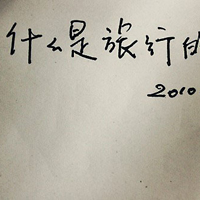 什么是旅行的
2010